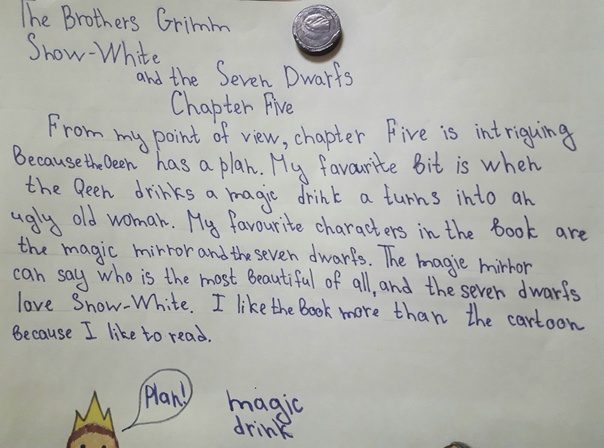 The Brothers Grimm
Snow-White
and the Seven Dwarfs
Chapter Five
From my point of view, chapter Five is intriguing
Because the Qeen has a plan. My favourite Bit is when
the Qeen drinks a magic drink a turns into an
ugly old woman. My favourite characters in the Book are
the magic mirror and the seven dwarfs. The magic mirror
can say who is the most Beautiful of all, and the seven dwarfs
love Snow-White. I like the Book more than the cartoon
Because I like to read.
Plan!
magic
drink